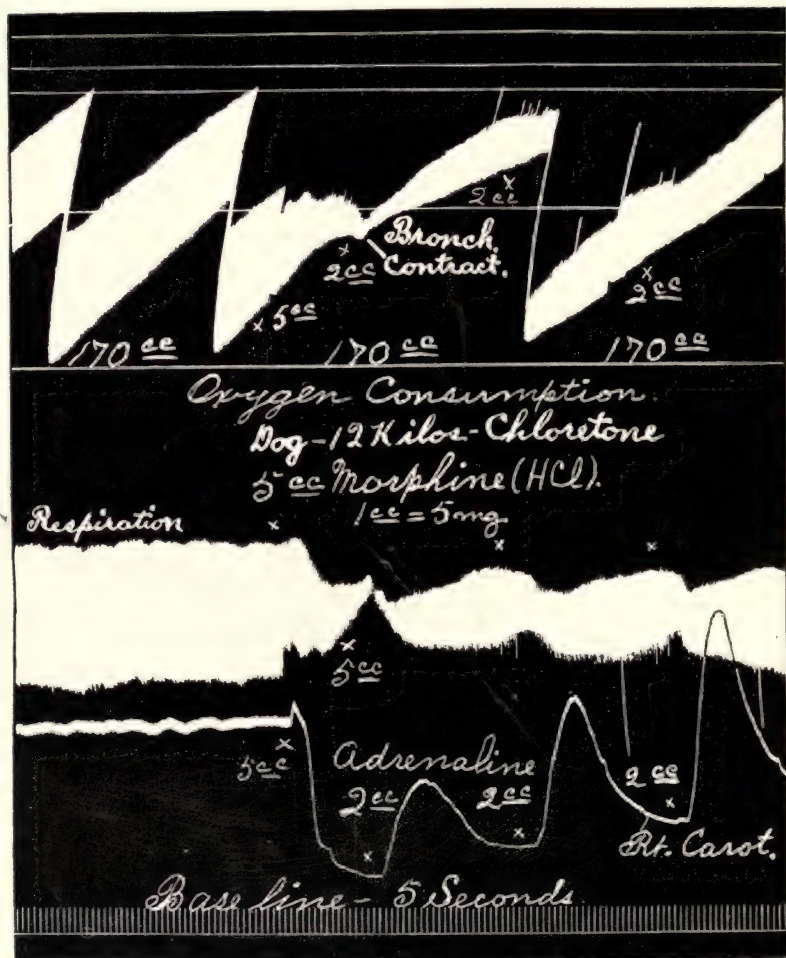 2 cc
Bronch.
2 cc Contract.
5 cc
2 cc
170 cc 170 cc 170 cc
Oxygen Consumption.
Dog-12 Kilos-Chloretone
5 cc Morphine (HCl).
1 cc = 5 mg
Respiration
5 cc
5 cc Adrenaline
2 cc 2 cc 2 cc
Rt. Carot.
Base line - 5 Seconds